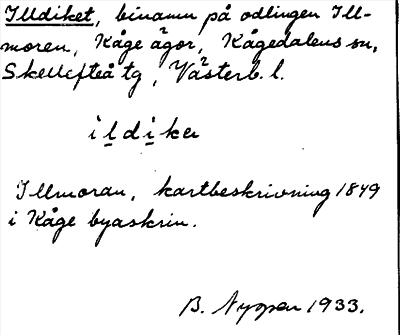 Illdiket, binamn på odlingen Ill-
moren, Kåge ägor, Kågedalens sn,
Skellefteå tg, Västerb. l.
ildiker
Illmoran, kartbeskrivning 1849
i Kåge byaskrin.
B. 1933.